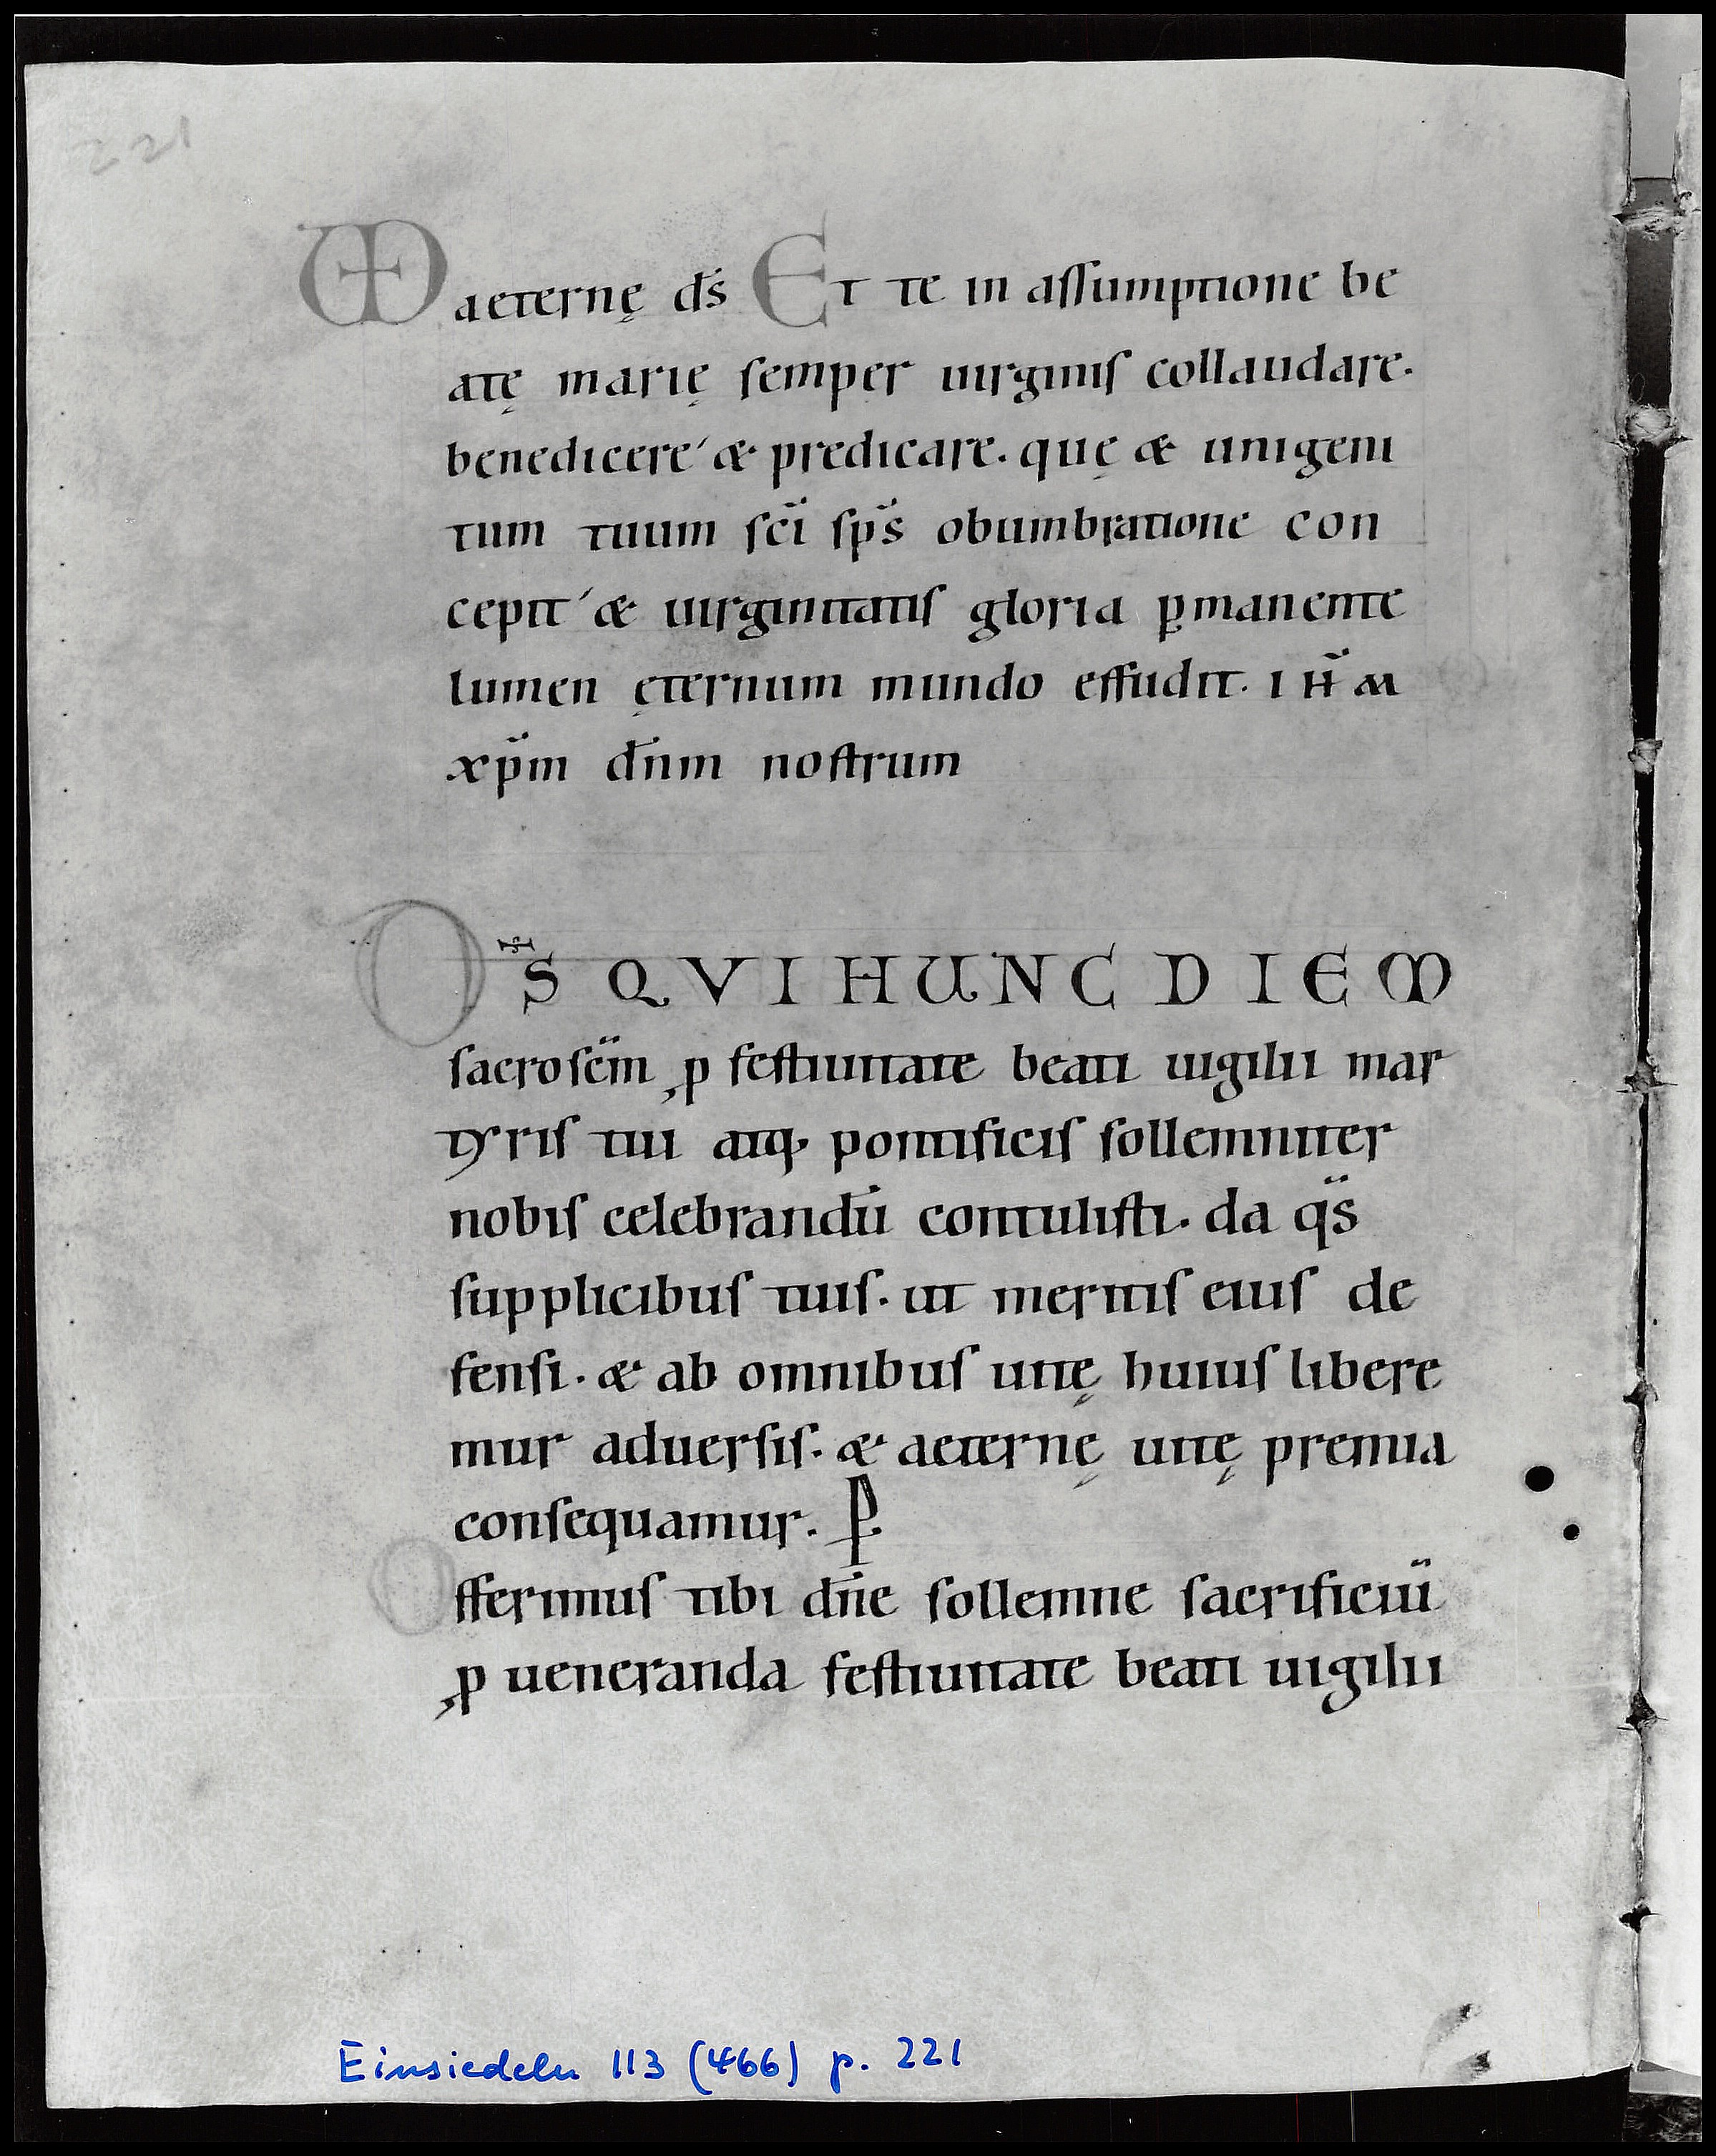 221
VD aeternę ds̄ Et te in aſſumptione be
atę marię ſemper uirginiſ collaudare.
benedicere & predicare. quę & unigeni
tum tuum ſcī ſps̄ obumbratione con
cepit & uirginitatiſ gloria ꝑmanente
lumen ęternum mundo effudit. IHM̄
xp̄m dn̄m noſtrum
DS̄ QVI HUNC DIEM
ſacroſcm̄ ꝓ feſtiuitate beati uigilii mar
tyriſ tui atq; pontificiſ ſollemniter
nobiſ celebrandū contuliſti. da qs̄
ſupplicibuſ tuiſ. ut meritiſ eiuſ de
fenſi. & ab omnibuſ uitę huiuſ libere
mur aduerſiſ. & aeternę uitę premia
conſequamur. P.
Offerimuſ tibi dn̄e ſollemne ſacrificiū
ꝓ ueneranda feſtiuitate beati uigilii
Einsiedeln 113 (466) p. 221